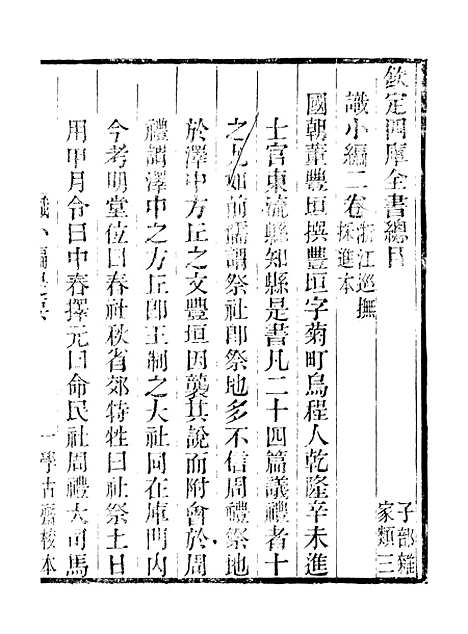 欽定四庫全書總目
子部雜
家類三
識小編二卷
浙江巡撫
採進本
國朝董豐垣撰豐垣字菊町烏程人乾隆辛未進
士官東流縣知縣是書凡二十四篇議禮者十
之九如前儒謂祭社即祭地多不信周禮祭地
於澤中方丘之文豐垣因襲其說而附會於周
禮謂澤中之方丘即王制之大社同在庫門內
今考明堂位曰春社秋省郊特牲曰社祭土日
用甲月令曰中春擇元日命民社周禮大司馬
識小編提要
一學古齋校本